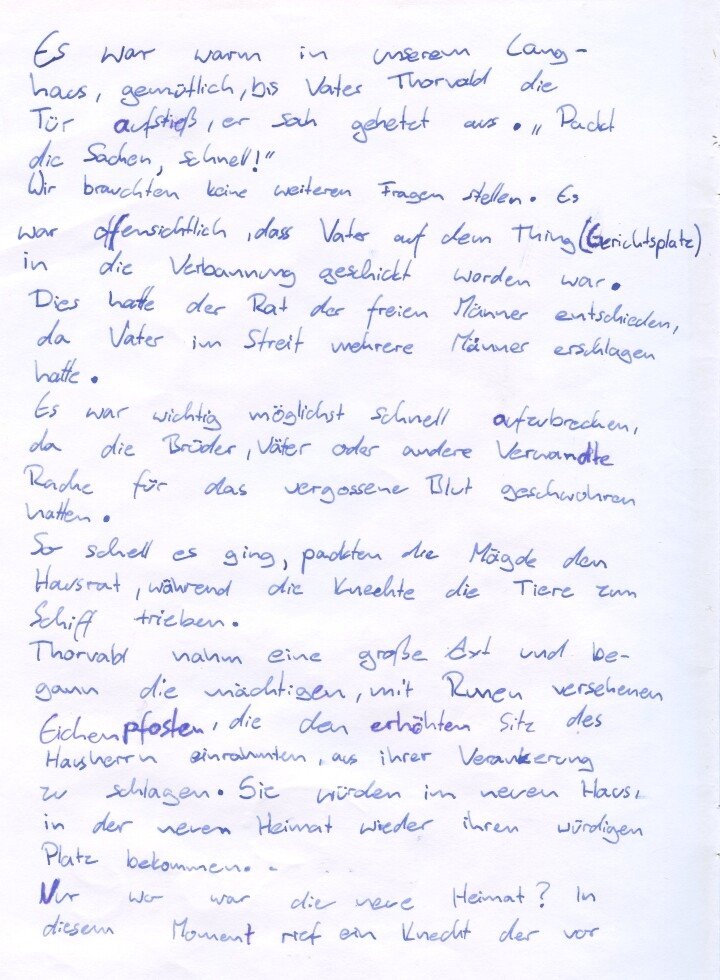 Es war warm in unserem Lang-
haus, gemütlich, bis Vater Thorvald die
Tür aufstieß, er sah gehetzt aus. „Packt
die Sachen, schnell!"
Wir brauchten keine weiteren Fragen stellen. Es
war offensichtlich, dass Vater auf dem Thing (Gerichtsplatz)
in die Verbannung geschickt worden war.
Dies hatte der Rat der freien Männer entschieden,
da Vater im Streit mehrere Männer erschlagen
hatte.
Es war wichtig möglichst schnell aufzubrechen,
da die Brüder, Väter oder andere Verwandte
Rache für das vergossene Blut geschwohren
hatten.
So schell es ging, packten die Mägde den
Hausrat, während die Knechte die Tiere zum
Schiff trieben.
Thorvald nahm eine große Axt und be-
gann die mächtigen, mit Runen versehenen
Eichenpfosten, die den erhöhten Sitz des
Hausherrn einrahmten, aus ihrer Verankerung
zu schlagen. Sie würden im neuen Haus,
in der neuen Heimat wieder ihren würdigen
Platz bekommen.
Nur wo war die neue Heimat? In
diesem Moment rief ein Knecht der vor